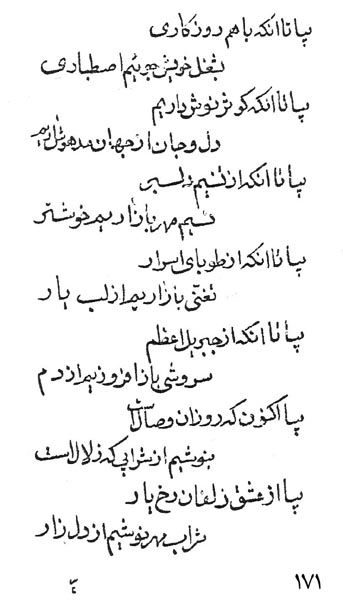 بیا تا انکه با هم روزکاری
بشغل خویش جوئیم اصطباری
بیا تا انکه کوثر نوش داریم
دل و جان از جهان مدهوش داریم
بیا تا انکه از نسیم دلبر
نسیم مهر باز اریم خوشتر
بیا تا انکه از طوبای اسرار
تغنّی باز اریم از لب یار
بیا تا انکه از جبریل اعظم
سروشی باز افروزیم از دم
بیا اکنون که روزان وصال است
بنوشیم از شرابی که زلال است
بیا از عشق زلفان رخ یار
شراب مهر نوشیم از دل زار
۱۷۱